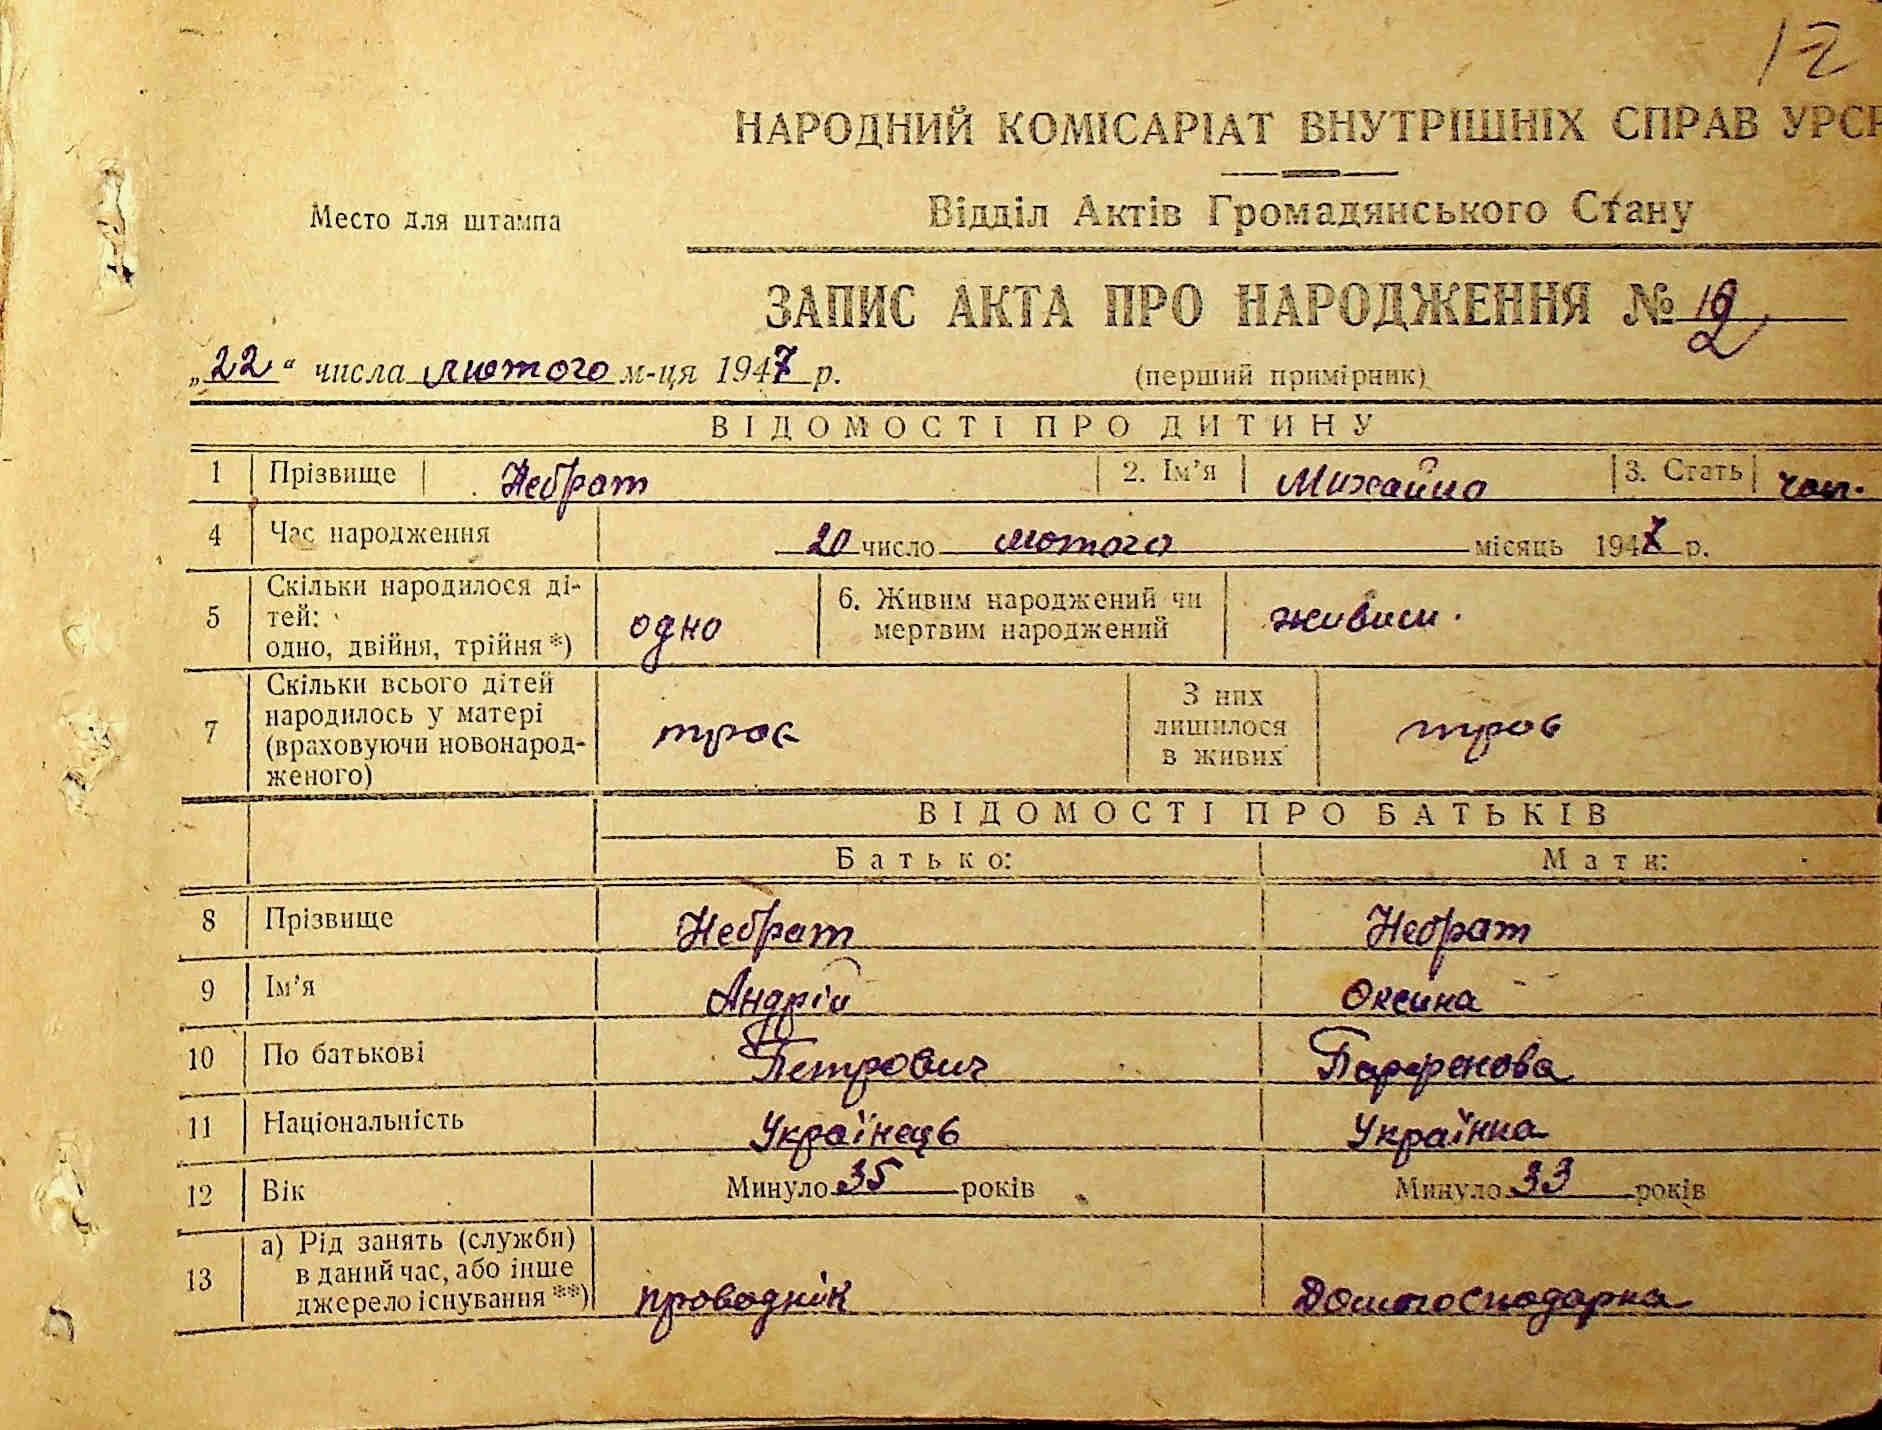 12
НАРОДНИЙ КОМІСАРІАТ ВНУТРІШНІХ СПРАВ УРСР
Место для штампа
Відділ Актів Громадянського Стану
ЗАПИС АКТА ПРО НАРОДЖЕННЯ № 12
„22“ числа лютого м-ця 1947 р. (перший примірник)
ВІДОМОСТІ ПРО ДИТИНУ
1 Прізвище Небрат 2. Ім'я Михайло 3. Стать чол.
4 Час народження 20 число лютого місяць 1947 р.
5 Скільки народилося ді-
тей:
одно, двійня, трійня *)
одно
6. Живим народжений чи
мертвим народжений
живим.
7 Скільки всього дітей
народилось у матері
(враховуючи новонарод-
женого)
троє
З них
лишилося
в живих
троє
ВІДОМОСТІ ПРО БАТЬКІВ
Батько: Мати:
8 Прізвище Небрат Небрат
9 Ім'я Андрій Оксана
10 По батькові Петрович Парфенова
11 Національність Українець Українка
12 Вік Минуло 35 років Минуло 33 років
13 а) Рід занять (служби)
в даний час, або інше
джерело існування **)
проводнік Домогосподарка